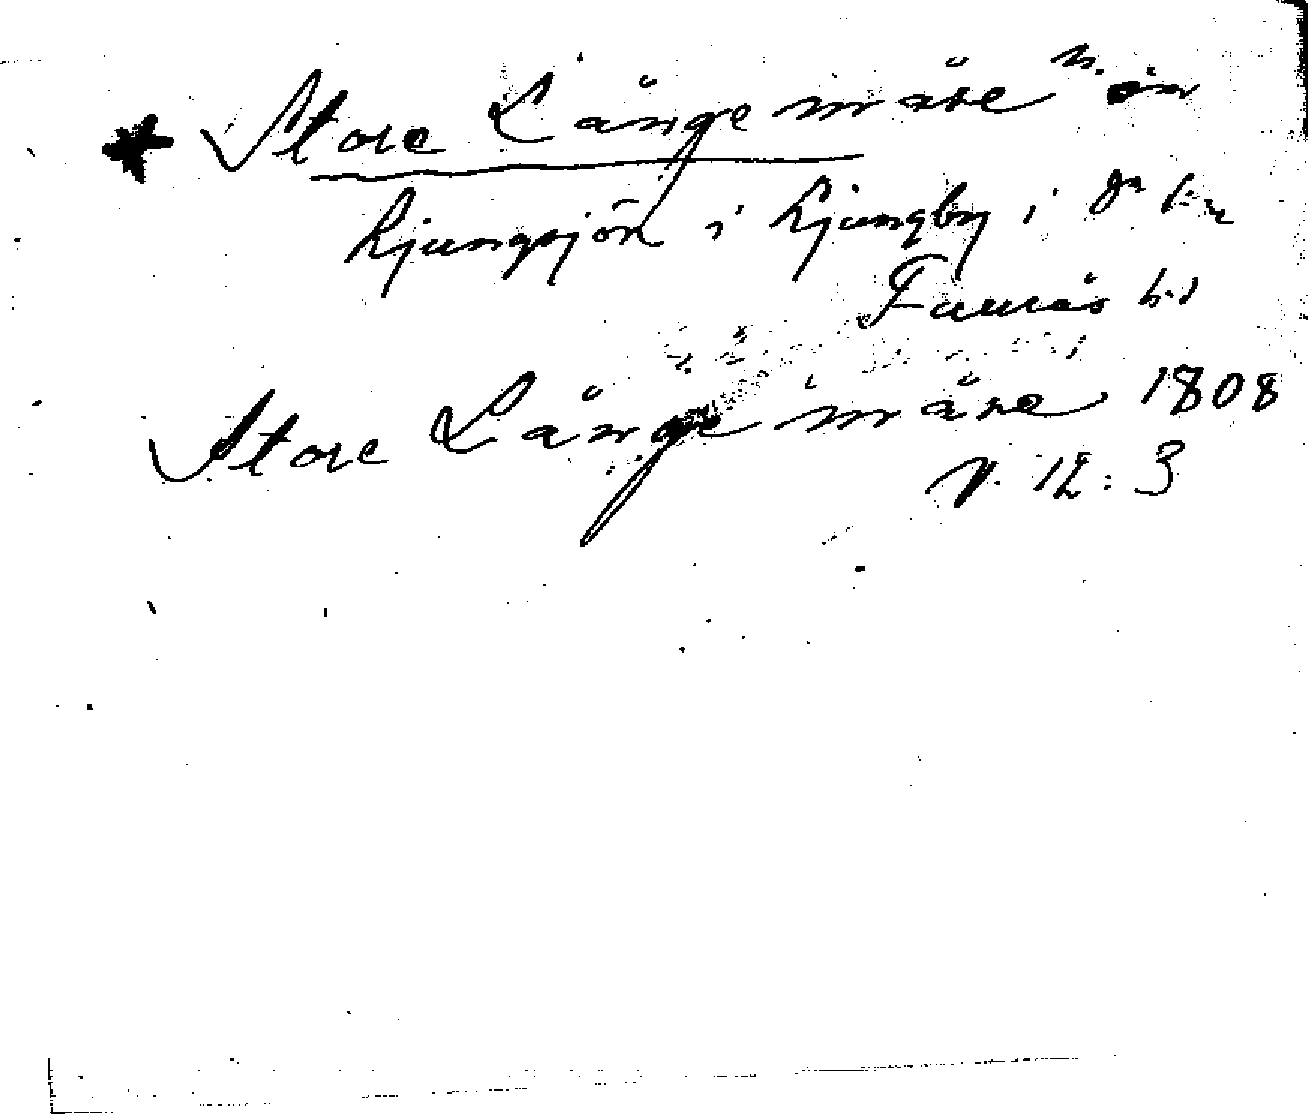 * Store Långe måse n. om
Ljungsjön i Ljungby i dn sn
Faurås hd
Store Långe måse 1808
v. 12:3